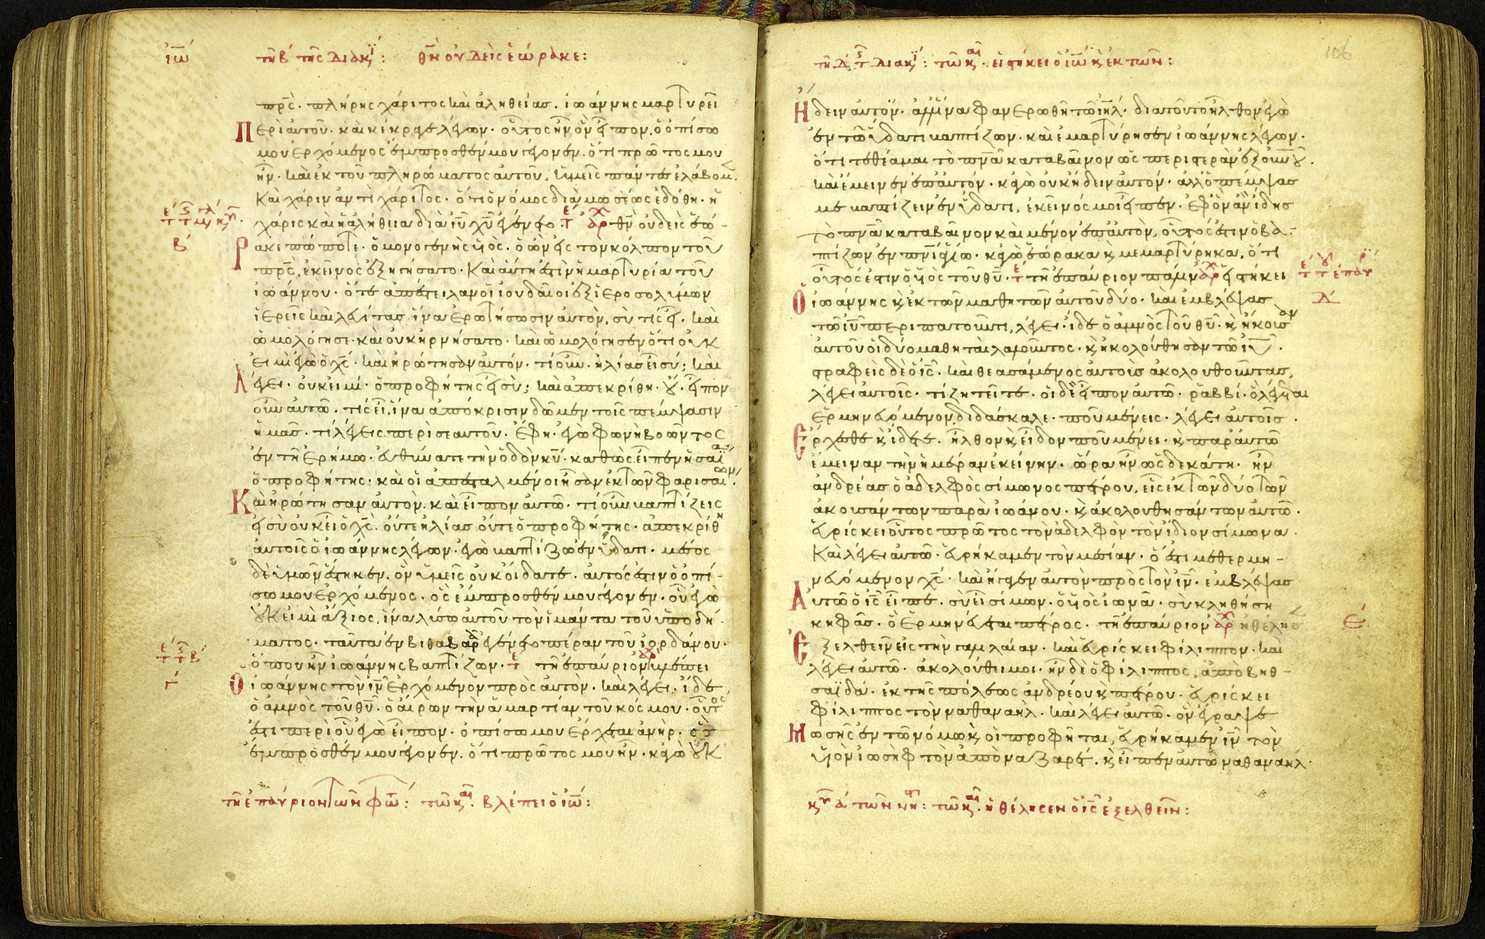 ἰω
τῇ β τῆς διακ: θν οὐδεὶς ἑώρακε:
πρς. πλήρης χάριτος καὶ ἀληθείας. ἰωάννης μαρτυρεῖ
περὶ αὐτοῦ. καὶ κέκραγε λέγων. οὗτος ἦν ὃν εἶπον, ὁ ὀπίσω
μου ἐρχόμενος ἔμπροσθέν μου γέγονεν. ὅτι πρῶτός μου
ἦν. καὶ ἐκ τοῦ πληρώματος αὐτοῦ, ἡμεῖς πάντες ἐλάβομεν.
Καὶ χάριν ἀντὶ χάριτος. ὅτι ὁ νόμος διὰ μωσέως ἐδόθη. ἡ
χάρις καὶ ἡ ἀλήθεια διὰ ιυ χυ ἐγένετο. θν οὐδεὶς ἑώ-
β
ρακε πώποτε. ὁ μονογενὴς υἱὸς. ὁ ὢν εἰς τὸν κόλπον τοῦ
πρς, ἐκεῖνος ἐξηγήσατο. Καὶ αὕτη ἐστὶν ἡ μαρτυρία τοῦ
ἰωάννου. ὅτε ἀπέστειλαν οἱ ἰουδαῖοι ἐξ ἱεροσολύμων
ἱερεῖς καὶ λευίτας. ἵνα ἐρωτήσωσιν αὐτόν, σὺ τίς εἶ. καὶ
ὡμολόγησε. καὶ οὐκ ἠρνήσατο. καὶ ὡμολόγησεν ὅτι οὐκ
εἰμὶ ἐγὼ ὁ χς. καὶ ἠρώτησαν αὐτόν. τί οὖν. ἠλίας εἶ σύ; καὶ
λέγει. οὐκ εἰμί. ὁ προφήτης εἶ σύ; καὶ ἀπεκρίθη. οὔ. εἶπον
οὖν αὐτῷ. τίς εἶ, ἵνα ἀπόκρισιν δῶμεν τοῖς πέμψασιν
ἡμᾶς. τί λέγεις περὶ σεαυτοῦ. ἔφη. ἐγὼ φωνὴ βοῶντος
ἐν τῇ ἐρήμω. εὐθύνατε τὴν ὁδὸν κυ. καθὼς εἶπεν ἡσαΐας
ὁ προφήτης. καὶ οἱ ἀπεσταλμένοι ἦσαν ἐκ τῶν φαρισαίων.
Καὶ ἠρώτησαν αὐτὸν. καὶ εἶπον αὐτῶ. τί οὖν βαπτίζεις
εἰ σὺ οὐκ εἶ ὁ χς. οὔτε ἠλίας οὔτε ὁ προφήτης. ἀπεκρίθη
αὐτοῖς ὁ ἰωάννης λέγων. ἐγὼ βαπτίζω ἐν ὕδατι. μέσος
δὲ ὑμῶν ἕστηκεν. ὃν ὑμεῖς οὐκ οἴδατε. αὐτός ἐστιν ὁ ὀπί-
σω μου ἐρχόμενος. ὃς ἔμπροσθέν μου γέγονεν. οὗ ἐγὼ
οὐκ εἰμὶ ἄξιος, ἵνα λύσω αὐτοῦ τὸν ἱμάντα τοῦ ὑποδή-
ματος. ταῦτα ἐν βιθαβαρᾶ ἐγένετο πέραν τοῦ ἰορδάνου.
ὅπου ἦν ἰωάννης βαπτίζων. τῇ ἐπαύριον βλέπει
γ
ὁ ἰωάννης τὸν ιν ἐρχόμενον πρὸς αὐτὸν. καὶ λέγει. ἴδε
ὁ ἀμνὸς τοῦ θυ. ὁ αἴρων τὴν ἁμαρτίαν τοῦ κόσμου. οὗτός
ἐστι περὶ οὗ ἐγὼ εἶπον. ὀπίσω μου ἔρχεται ἀνὴρ. ὃς
ἔμπροσθέν μου γέγονεν. ὅτι πρῶτός μου ἦν. κἀγὼ οὐκ
τῇ ἐπαύριον τῶν φώτ: τῶ κ. βλέπει ὁ ἰω:
106
τῇ δ τ διακ: τῶ κ. εἱστήκει ὁ ἰω κ ἐκ τῶν:
ᾔδειν αὐτόν. ἀλλ' ἵνα φανερωθῆ τῷ ιηλ. διὰ τοῦτο ἦλθον ἐγὼ
ἐν τῷ ὕδατι βαπτίζων. καὶ ἐμαρτύρησεν ἰωάννης λέγων.
ὅτι τεθέαμαι τὸ πνα καταβαῖνον ὡς περιστερὰν ἐξ ουνου.
καὶ ἔμεινεν ἐπ' αὐτόν. κἀγὼ οὐκ ᾔδειν αὐτόν. ἀλλ' ὁ πέμψας
με βαπτίζειν ἐν ὕδατι, ἐκεῖνός μοι εἶπεν. ἐφ' ὃν ἂν ἴδης
τὸ πνα καταβαῖνον καὶ μένον ἐπ' αὐτόν, οὗτός ἐστιν ὁ βα-
πτίζων ἐν πνι ἁγίω. κἀγὼ ἑώρακα κ μεμαρτύρηκα, ὅτι
οὗτός ἐστιν ὁ υἱὸς τοῦ θυ. τῇ ἐπαύριον πάλιν εἱστήκει
δ
ὁ ἰωάννης κ ἐκ τῶν μαθητῶν αὐτοῦ δύο. καὶ ἐμβλέψας
τῶ ιυ περιπατοῦντι, λέγει. ἴδε ὁ ἀμνὸς τοῦ θυ. κ ἤκουσαν
αὐτοῦ οἱ δύο μαθηταὶ λαλοῦντος. κ ἠκολούθησαν τῶ ιυ.
στραφεὶς δὲ ὁ ις. καὶ θεασάμενος αὐτοὺς ἀκολουθοῦντας,
λέγει αὐτοῖς. τί ζητεῖτε. οἱ δὲ εἶπον αὐτῶ. ῥαββί. ὃ λέγεται
ἑρμηνευόμενον, διδάσκαλε. ποῦ μένεις. λέγει αὐτοῖς.
ἔρχεσθε κ ἴδετε. ἦλθον κ εἶδον ποῦ μένει. κ παρ' αὐτῶ
ἔμειναν τὴν ἡμέραν ἐκείνην. ὥρα ἦν ὡς δεκάτη. ἦν
ἀνδρέας ὁ ἀδελφὸς σίμωνος πέτρου, εἷς ἐκ τῶν δύο τῶν
ἀκουσάντων παρὰ ἰωάνου. κ ἀκολουθησάντων αὐτῶ.
εὑρίσκει οὗτος πρῶτος τὸν ἀδελφὸν τὸν ἴδιον σίμωνα.
Καὶ λέγει αὐτῶ. εὑρήκαμεν τὸν μεσίαν. ὅ ἐστι μεθερμη-
νευόμενον χς. καὶ ἤγαγεν αὐτὸν πρὸς τὸν ιν. ἐμβλέψας
αὐτῶ ὁ ις εἶπε. σὺ εἶ σίμων. ὁ υἱὸς ἰωνᾶ. σὺ κληθήση
κηφᾶς. ὃ ἑρμηνεύεται πέτρος. τῇ ἐπαύριον ἠθέλησεν
ε
ἐξελθεῖν εἰς τὴν γαλιλαίαν. καὶ εὑρίσκει φίλιππον. καὶ
λέγει αὐτῶ. ἀκολούθει μοι. ἦν δὲ ὁ φίλιππος, ἀπὸ βηθ-
σαϊδά. ἐκ τῆς πόλεως ἀνδρέου κ πέτρου. εὑρίσκει
φίλιππος τὸν ναθαναήλ. καὶ λέγει αὐτῶ. ὃν ἔγραψε
μωσῆς ἐν τῶ νόμω κ οἱ προφῆται, εὑρήκαμεν ιν τὸν
υἱὸν ἰωσὴφ τὸν ἀπὸ ναζαρέτ. κ εἶπεν αὐτῶ ναθαναήλ.
κυ α τῶν νη: τῶ κ. ἠθέλησεν ὁ ις ἐξελθεῖν: